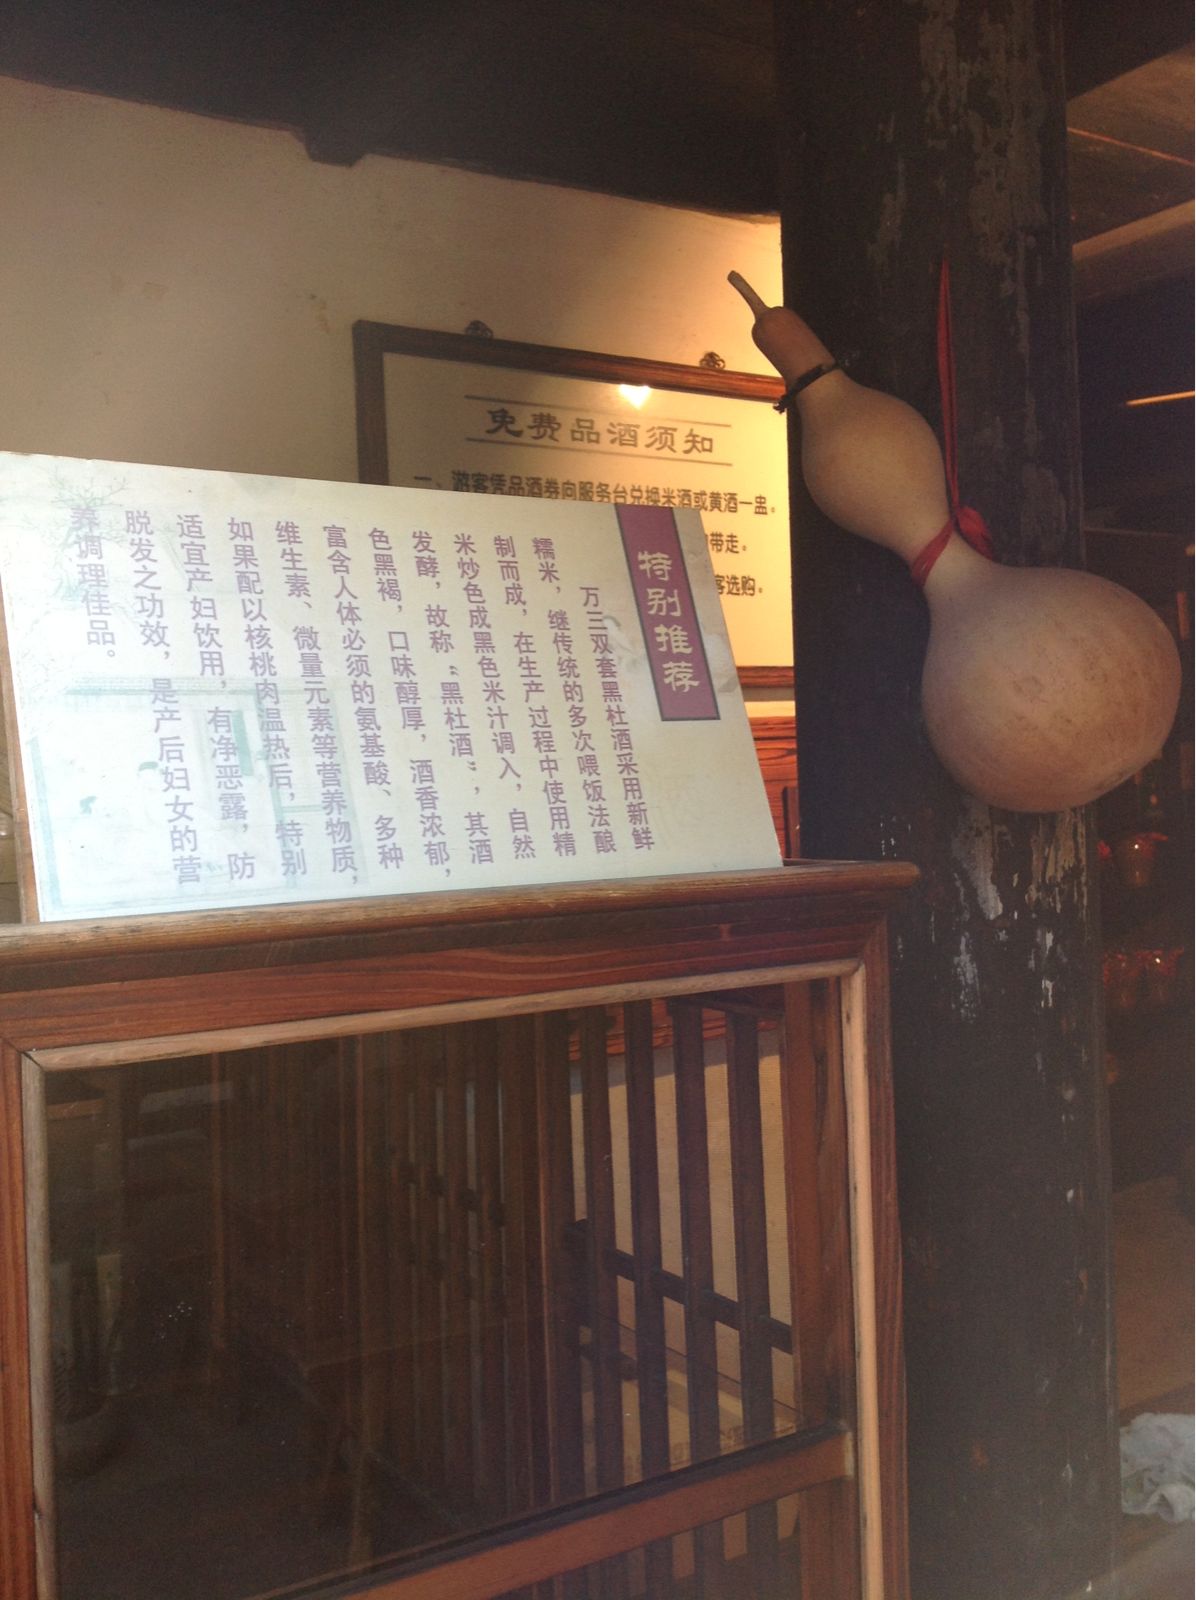 免费品酒须知
一、游客凭品酒券向服务台兑换米酒或黄酒一盅。
带走。
客选购。
特别推荐
万三双套黑杜酒采用新鲜
糯米，继传统的多次喂饭法酿
制而成，在生产过程中使用精
米炒色成黑色米汁调入，自然
发酵，故称“黑杜酒”，其酒
色黑褐，口味醇厚，酒香浓郁，
富含人体必须的氨基酸、多种
维生素、微量元素等营养物质，
如果配以核桃肉温热后，特别
适宜产妇饮用，有净恶露，防
脱发之功效，是产后妇女的营
养调理佳品。